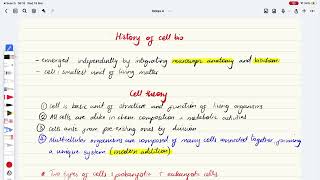 History of cell bio
- emerged independently by integrating microscopic anatomy and
- cell : smallest unit of living matter
Cell theory
① Cell is basic unit of structure and function of living organisms
② All cells are alike in chem composition + metabolic activities
③ Cells arise from pre existing ones by division
④ Multicellular organisms are composed of many cells connected together forming
a unique system (modern addition)
Two types of cells : prokaryotic + eukaryotic cells